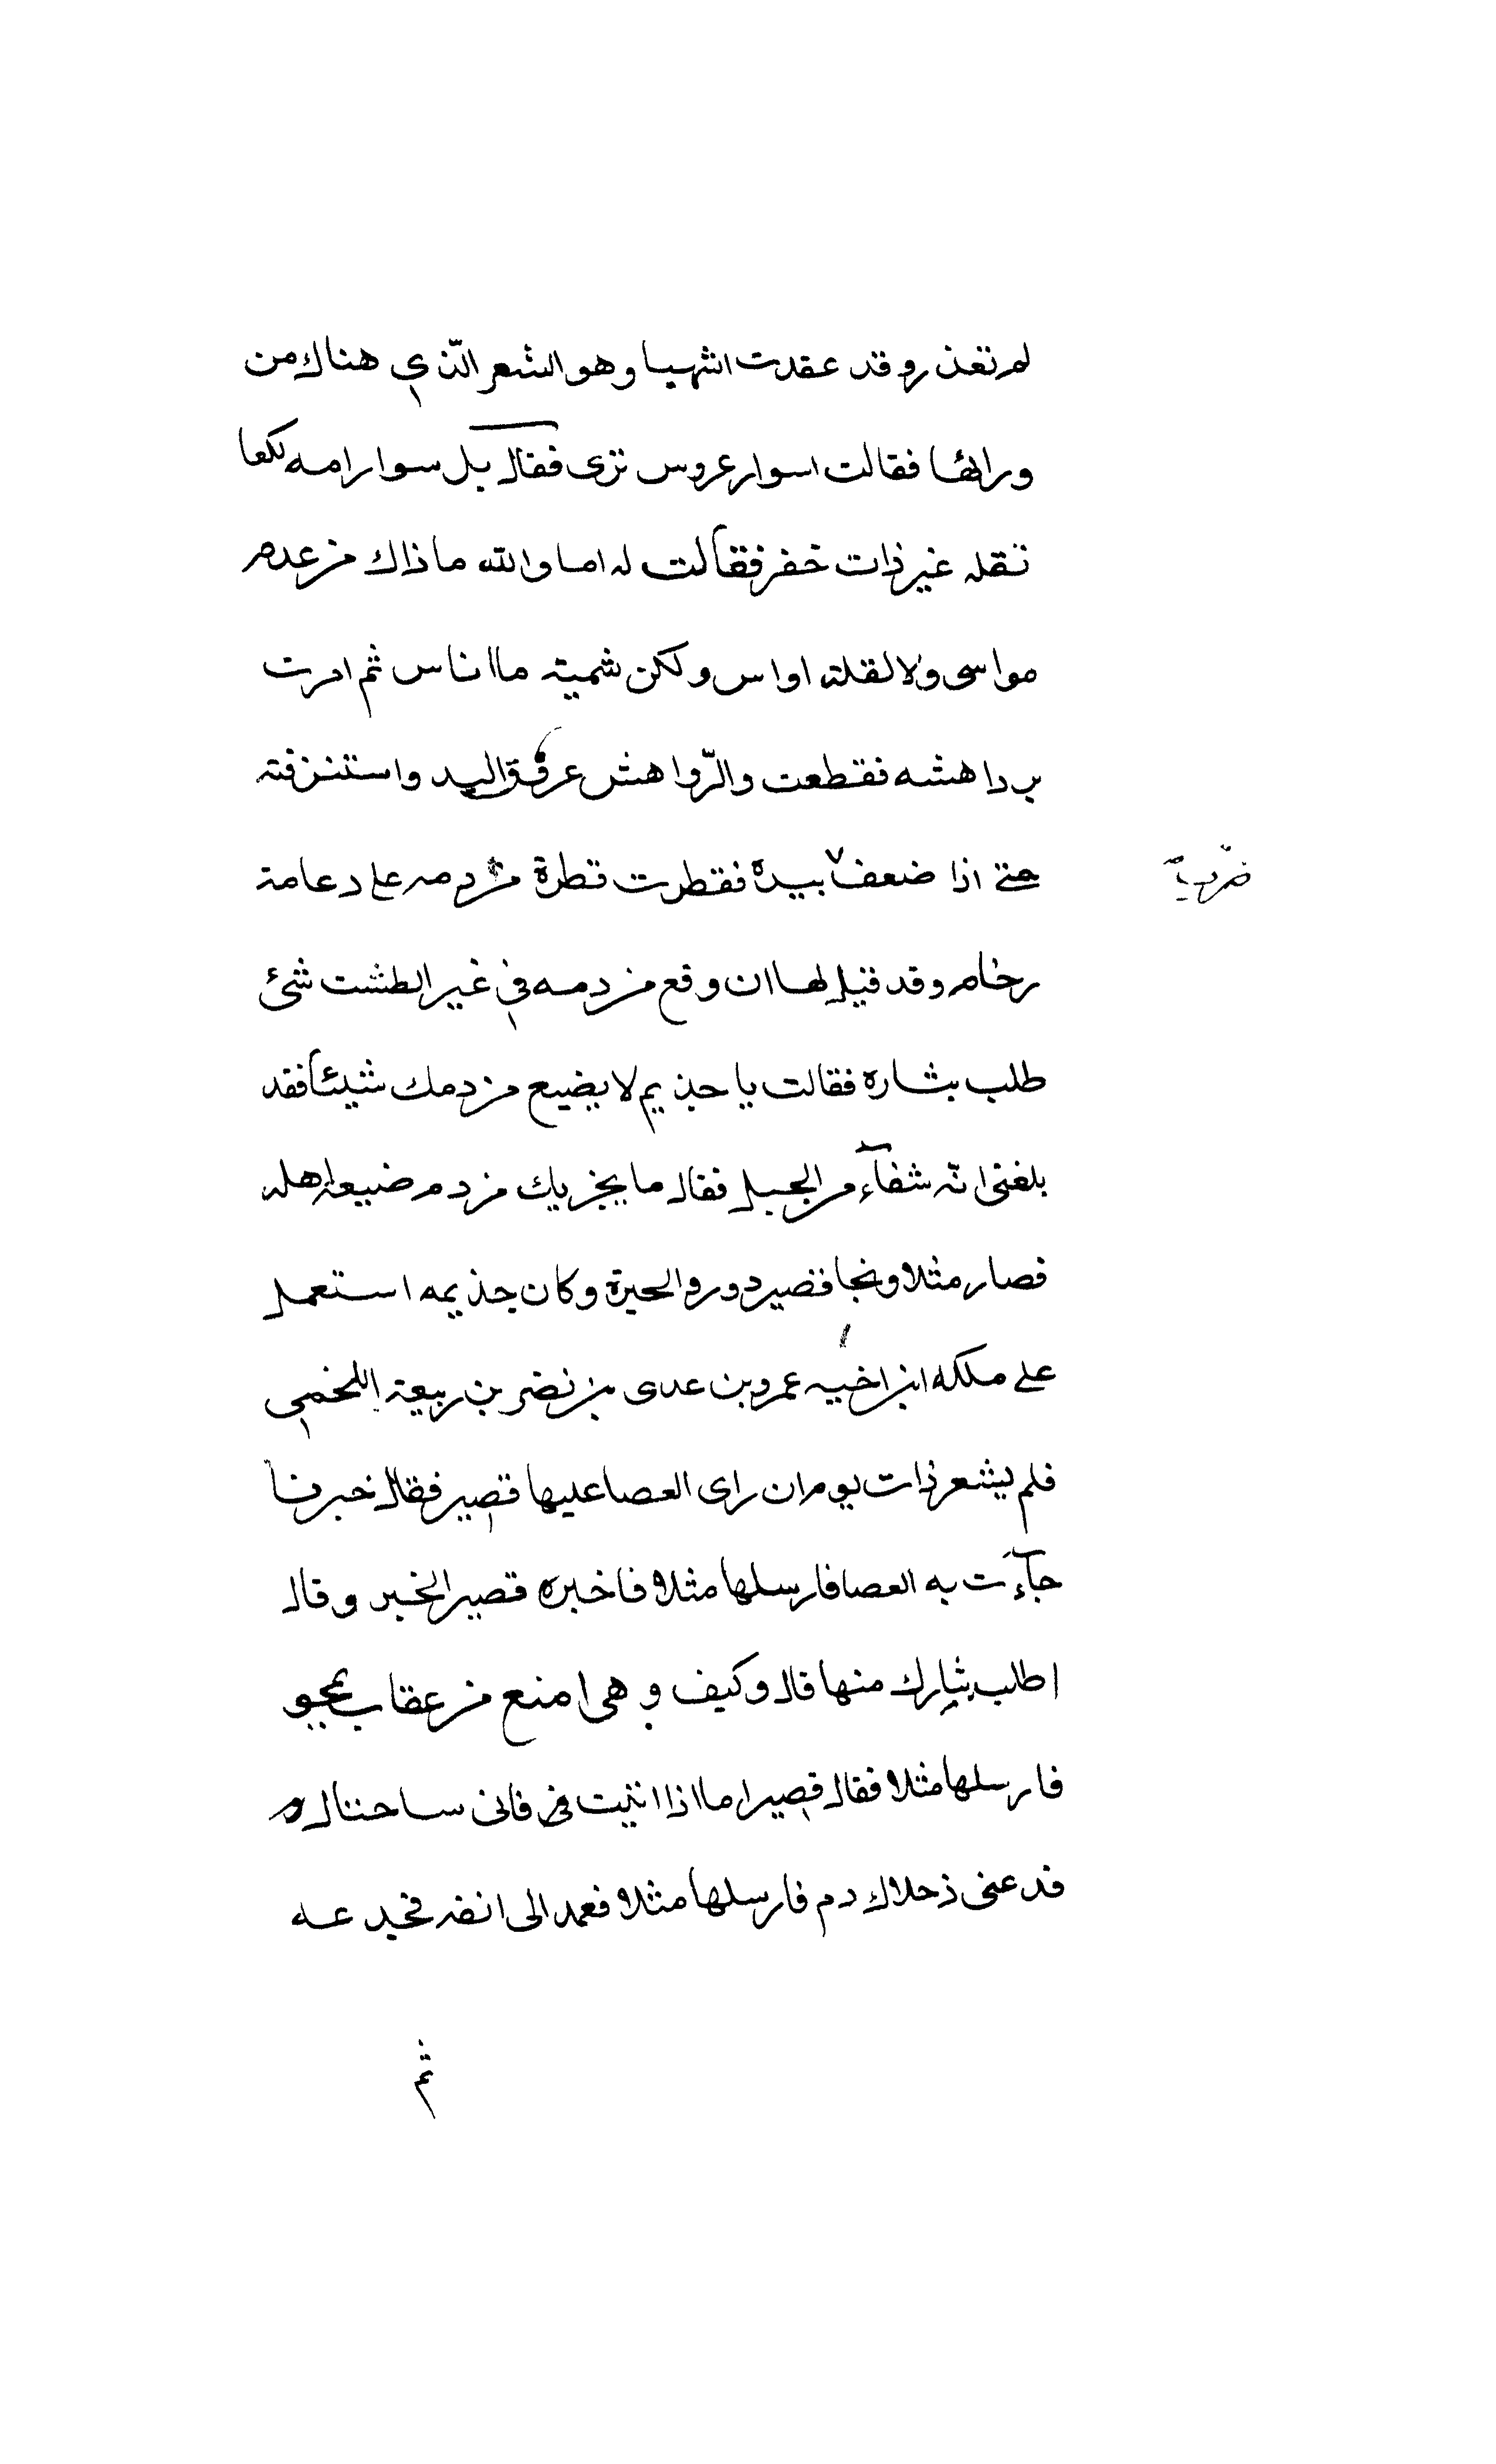 لم تعذر وقد عقدت اشهبا وهو الشعر الّذي هناك من
ورائها فقالت اسوار عروس ترى فقال بل سوار امه لكعا
تقله غير ذات خفر فقالت له اما والله ما ذاك من عدم
مواسى ولا لقلة اواس ولكن شمية ما اناس ثم امرت
برداهشه فقطعت والرّواهش عروق اليد واستنزفته
حتى اذا ضعف بيده فقطرت قطرة من دمه على دعامة
ضرب
رخام وقد قيل لها ان وقع من دمه في غير الطشت شئ
طلب بثاره فقالت يا جذيم لا يضيع من دمك شيئاً فقد
بلغنى انه شفآء من الجبل فقال ما يجزيك من دم ضيعه اهله
فصار مثلا ونجا قصير دورو الحيرة وكان جذيمه استعمل
على ملكه ابن اخيه عمرو بن عدى بن نضر بن ربيعة اللخمي
فلم يشعر ذات يوم ان راى العصا عليها قصير فقال خبر ما
جآءت به العصا فارسلها مثلا فاخبره قصير الخبر وقال
اطلب بثارك منها قال وكيف وهى امنع من عقاب بجو
فارسلها مثلا فقال قصير اما اذا اتيت في فانى ساحتال و
فدعنى ذحلاك دم فارسلها مثلا فعمد الى انفه فجدعه
ثم